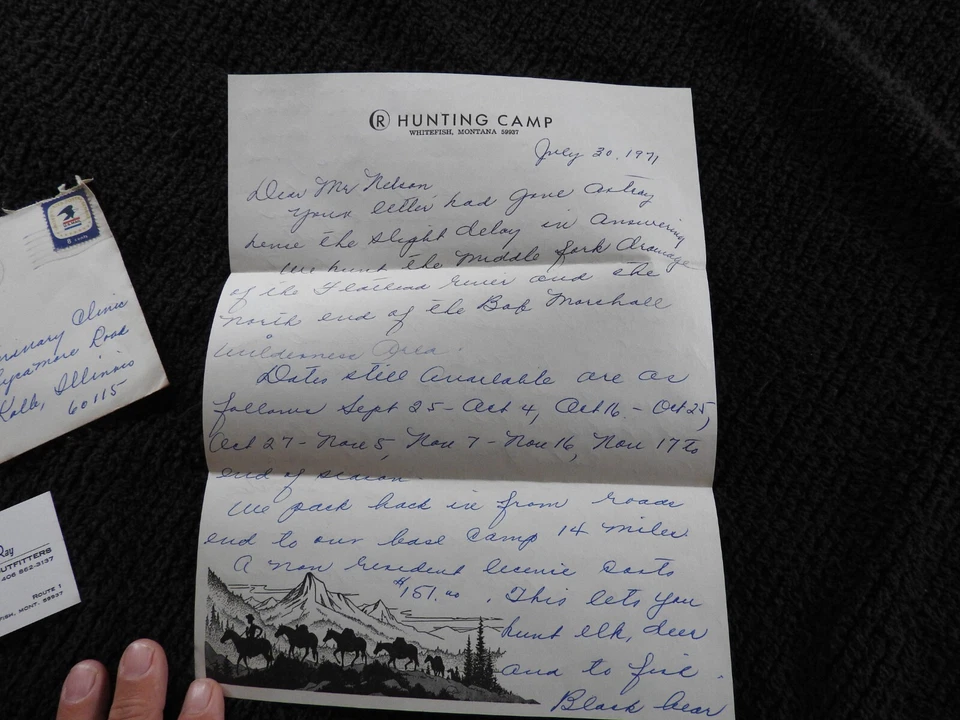 R HUNTING CAMP
WHITEFISH, MONTANA 59937
July 30, 1971
Dear Mr Nelson
Your letter had gone astray
hense the slight delay in answering
We hunt the Middle fork drainage
of the Flathead river and the
north end of the Bob Marshall
Wilderness Area.
Dates still available are as
follows Sept 25 - Oct 4, Oct 16 - Oct 25,
Oct 27 - Nov 5, Nov 7 - Nov 16, Nov 17 to
end of season.
We pack back in from roads
end to our base camp 14 miles
A non resident license costs
$151.00. This lets you
hunt elk, deer
and to fish.
Black bear
U.S. MAIL
8 cents
Clinic
Sycamore Road
Illinois
60115
Ray
OUTFITTERS
406 862-3137
ROUTE 1
FISH, MONT. 59937